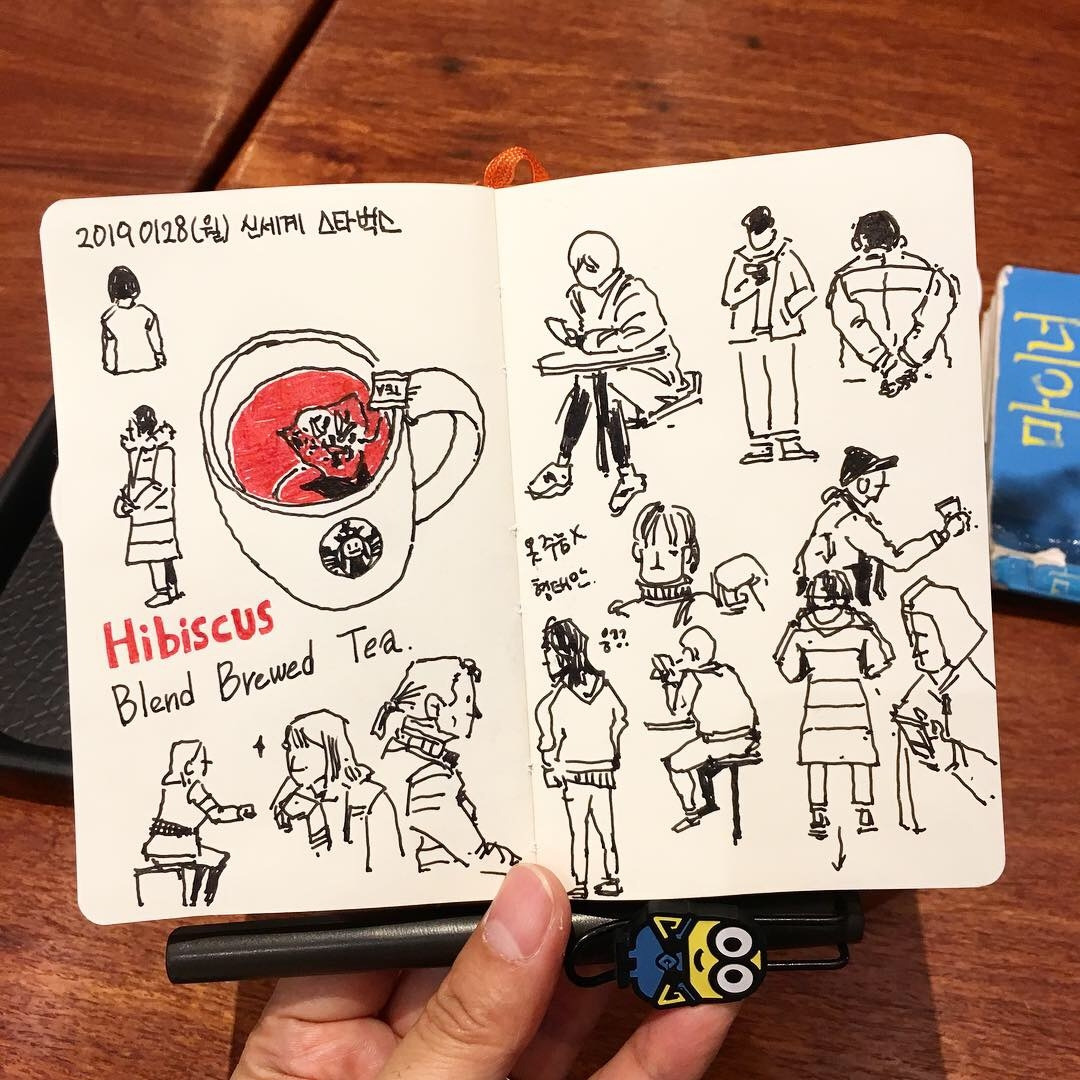 2019 0128(월) 신세계 스타벅스
TEA
Hibiscus
Blend Brewed Tea.
형태만.
마이너